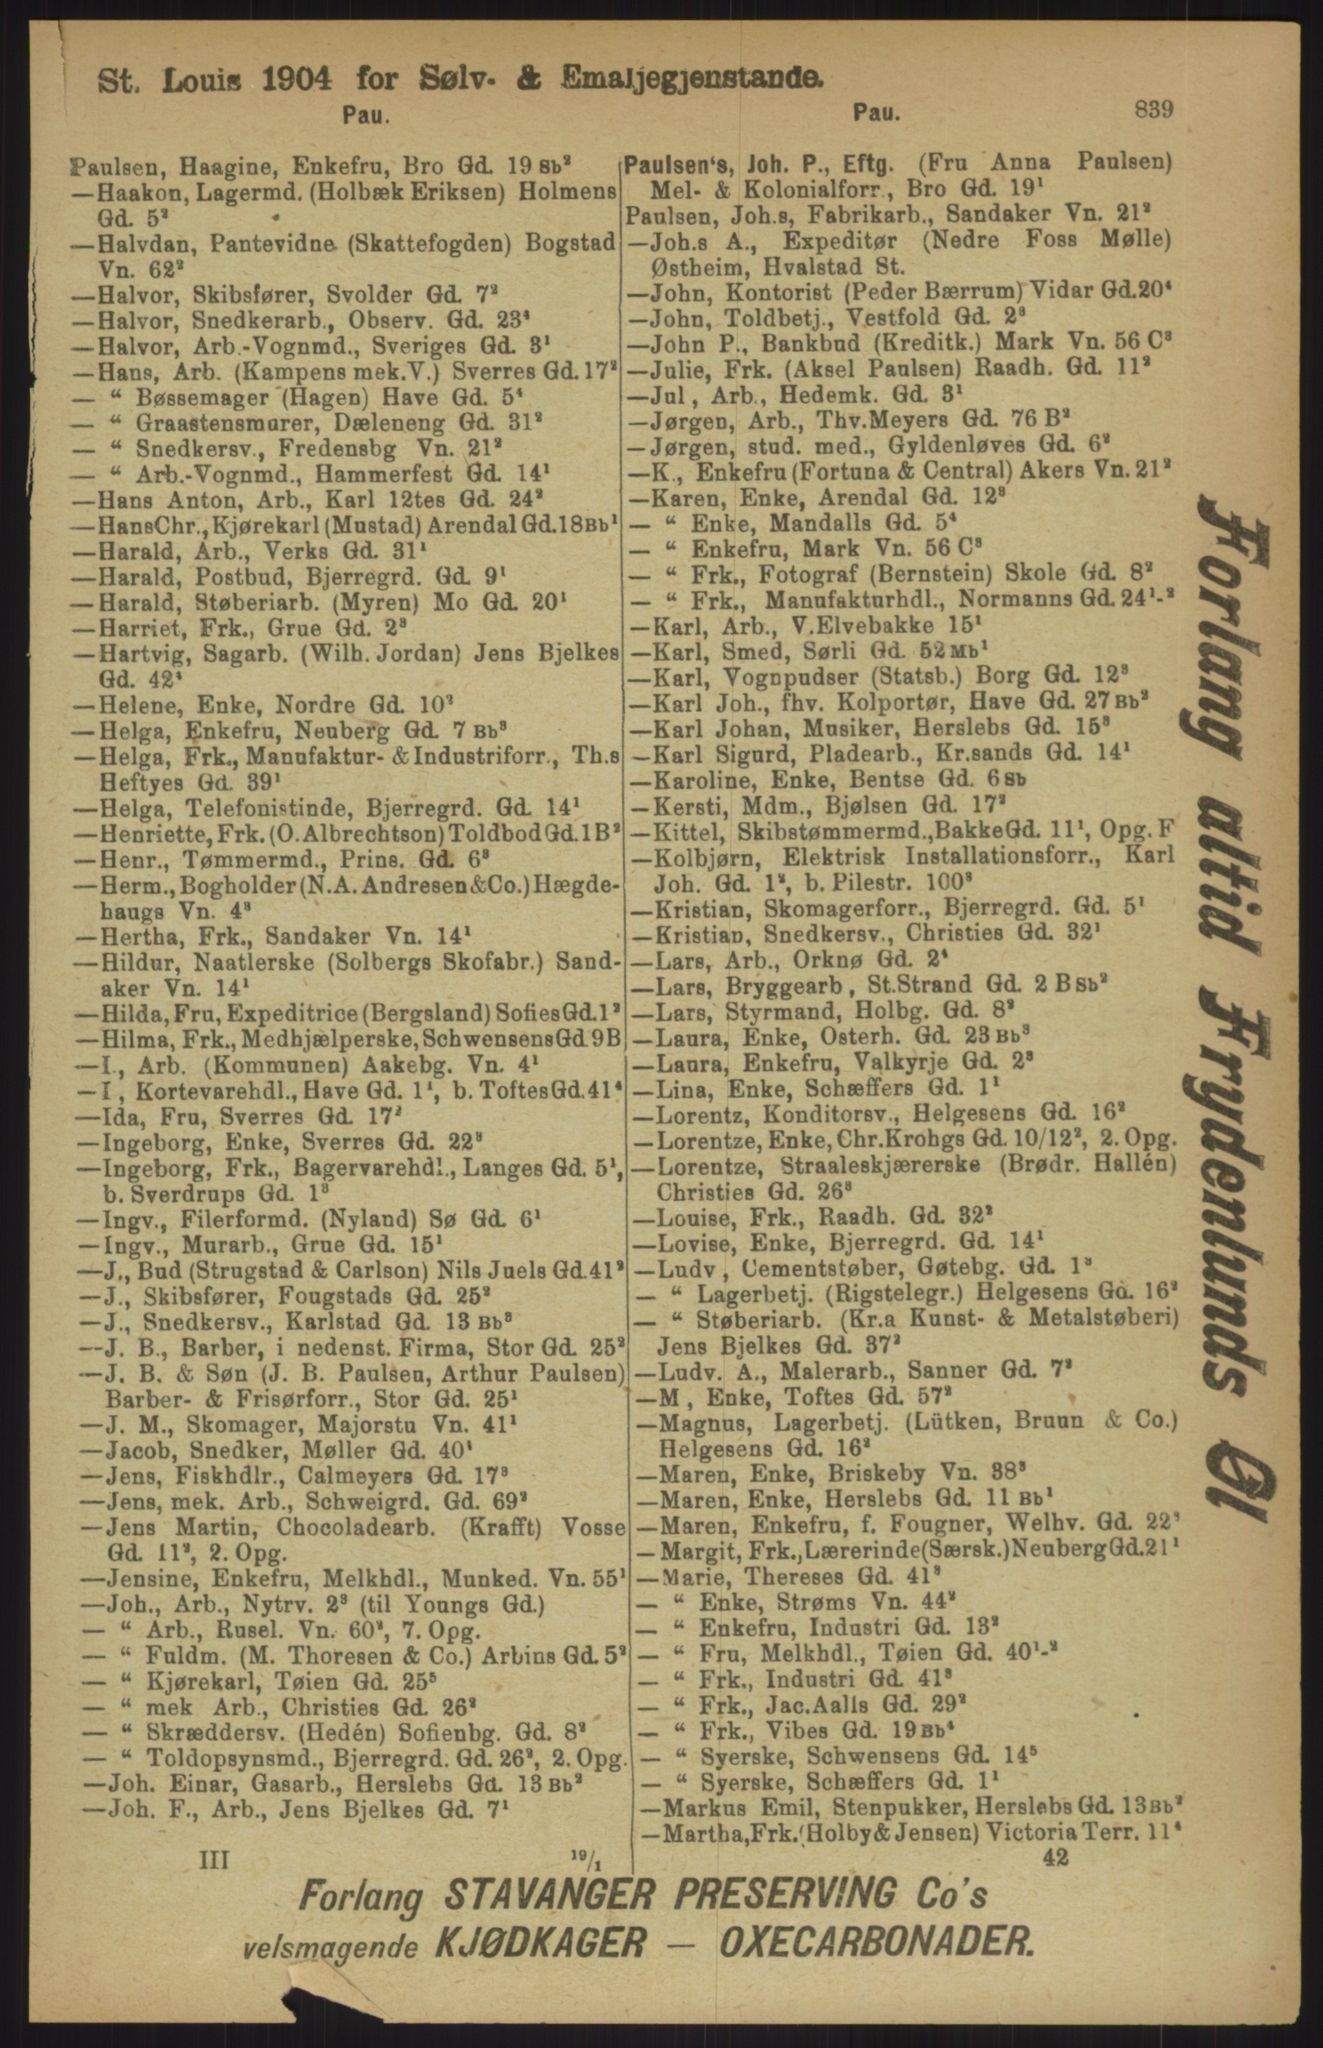 St. Louis 1904 for Sølv- & Emaljegjenstande.
Pau.
Pau.
839
Paulsen, Haagine, Enkefru, Bro Gd. 19 Sb²
—Haakon, Lagermd. (Holbæk Eriksen) Holmens
Gd. 5²
—Halvdan, Pantevidne (Skattefogden) Bogstad
Vn. 62²
—Halvor, Skibsfører, Svolder Gd. 7²
—Halvor, Snedkerarb., Observ. Gd. 23⁴
—Halvor, Arb.-Vognmd., Sveriges Gd. 3¹
—Hans, Arb. (Kampens mek.V.) Sverres Gd. 17²
— “ Bøssemager (Hagen) Have Gd. 5⁴
— “ Graastensmurer, Dæleneng Gd. 31²
— “ Snedkersv., Fredensbg Vn. 21²
— “ Arb.-Vognmd., Hammerfest Gd. 14¹
—Hans Anton, Arb., Karl 12tes Gd. 24²
—Hans Chr., Kjørekarl (Mustad) Arendal Gd. 18 Bb¹
—Harald, Arb., Verks Gd. 31¹
—Harald, Postbud, Bjerregrd. Gd. 9¹
—Harald, Støberiarb. (Myren) Mo Gd. 20¹
—Harriet, Frk., Grue Gd. 2³
—Hartvig, Sagarb. (Wilh. Jordan) Jens Bjelkes
Gd. 42⁴
—Helene, Enke, Nordre Gd. 10²
—Helga, Enkefru, Neuberg Gd. 7 Bb³
—Helga, Frk., Manufaktur- & Industriforr., Th.s
Heftyes Gd. 39¹
—Helga, Telefonistinde, Bjerregrd. Gd. 14¹
—Henriette, Frk. (O. Albrechtson) Toldbod Gd. 1 B²
—Henr., Tømmermd., Prins. Gd. 6³
—Herm., Bogholder (N. A. Andresen & Co.) Hægde-
haugs Vn. 4³
—Hertha, Frk., Sandaker Vn. 14¹
—Hildur, Naatlerske (Solbergs Skofabr.) Sand-
aker Vn. 14¹
—Hilda, Fru, Expeditrice (Bergsland) Sofies Gd. 1²
—Hilma, Frk., Medhjælperske, Schwensens Gd 9 B
—I., Arb. (Kommunen) Aakebg. Vn. 4¹
—I, Kortevarehdl., Have Gd. 1¹, b. Toftes Gd. 41⁴
—Ida, Fru, Sverres Gd. 17²
—Ingeborg, Enke, Sverres Gd. 22³
—Ingeborg, Frk., Bagervarehdl., Langes Gd. 5¹,
b. Sverdrups Gd. 1³
—Ingv., Filerformd. (Nyland) Sø Gd. 6¹
—Ingv., Murarb., Grue Gd. 15¹
—J., Bud (Strugstad & Carlson) Nils Juels Gd. 41²
—J., Skibsfører, Fougstads Gd. 25²
—J., Snedkersv., Karlstad Gd. 13 Bb³
—J. B., Barber, i nedenst. Firma, Stor Gd. 25²
—J. B. & Søn (J. B. Paulsen, Arthur Paulsen)
Barber- & Frisørforr., Stor Gd. 25¹
—J. M., Skomager, Majorstu Vn. 41¹
—Jacob, Snedker, Møller Gd. 40⁴
—Jens, Fiskhdlr., Calmeyers Gd. 17³
—Jens, mek. Arb., Schweigrd. Gd. 69²
—Jens Martin, Chocoladearb. (Krafft) Vosse
Gd. 11², 2. Opg.
—Jensine, Enkefru, Melkhdl., Munked. Vn. 55¹
—Joh., Arb., Nytrv. 2³ (til Youngs Gd.)
— “ Arb., Rusel. Vn. 60², 7. Opg.
— “ Fuldm. (M. Thoresen & Co.) Arbins Gd. 5²
— “ Kjørekarl, Tøien Gd. 25⁵
— “ mek Arb., Christies Gd. 26²
— “ Skræddersv. (Hedén) Sofienbg. Gd. 8²
— “ Toldopsynsmd., Bjerregrd. Gd. 26², 2. Opg.
—Joh. Einar, Gasarb., Herslebs Gd. 13 Bb²
—Joh. F., Arb., Jens Bjelkes Gd. 7¹
Paulsen‘s, Joh. P., Eftg. (Fru Anna Paulsen)
Mel- & Kolonialforr., Bro Gd. 19¹
Paulsen, Joh.s, Fabrikarb., Sandaker Vn. 21²
—Joh.s A., Expeditør (Nedre Foss Mølle)
Østheim, Hvalstad St.
—John, Kontorist (Peder Bærrum) Vidar Gd. 20⁴
—John, Toldbetj., Vestfold Gd. 2³
—John P., Bankbud (Kreditk.) Mark Vn. 56 C³
—Julie, Frk. (Aksel Paulsen) Raadh. Gd. 11²
—Jul, Arb., Hedemk. Gd. 3¹
—Jørgen, Arb., Thv. Meyers Gd. 76 B²
—Jørgen, stud. med., Gyldenløves Gd. 6²
—K., Enkefru (Fortuna & Central) Akers Vn. 21²
—Karen, Enke, Arendal Gd. 12³
— “ Enke, Mandalls Gd. 5⁴
— “ Enkefru, Mark Vn. 56 C³
— “ Frk., Fotograf (Bernstein) Skole Gd. 8²
— “ Frk., Manufakturhdl., Normanns Gd. 24¹-²
—Karl, Arb., V. Elvebakke 15¹
—Karl, Smed, Sørli Gd. 52 Mb¹
—Karl, Vognpudser (Statsb.) Borg Gd. 12³
—Karl Joh., fhv. Kolportør, Have Gd. 27 Bb²
—Karl Johan, Musiker, Herslebs Gd. 15³
—Karl Sigurd, Pladearb., Kr.sands Gd. 14¹
—Karoline, Enke, Bentse Gd. 6 Sb
—Kersti, Mdm., Bjølsen Gd. 17²
—Kittel, Skibstømmermd., Bakke Gd. 11¹, Opg. F
—Kolbjørn, Elektrisk Installationsforr., Karl
Joh. Gd. 1², b. Pilestr. 100³
—Kristian, Skomagerforr., Bjerregrd. Gd. 5¹
—Kristian, Snedkersv., Christies Gd. 32¹
—Lars, Arb., Orknø Gd. 2⁴
—Lars, Bryggearb, St. Strand Gd. 2 B Sb²
—Lars, Styrmand, Holbg. Gd. 8²
—Laura, Enke, Osterh. Gd. 23 Bb³
—Laura, Enkefru, Valkyrje Gd. 2³
—Lina, Enke, Schæffers Gd. 1¹
—Lorentz, Konditorsv., Helgesens Gd. 16²
—Lorentze, Enke, Chr. Krohgs Gd. 10/12², 2. Opg.
—Lorentze, Straaleskjærerske (Brødr. Hallén)
Christies Gd. 26³
—Louise, Frk., Raadh. Gd. 32²
—Lovise, Enke, Bjerregrd. Gd. 14¹
—Ludv, Cementstøber, Gøtebg. Gd. 1³
— “ Lagerbetj. (Rigstelegr.) Helgesens Gd. 16²
— “ Støberiarb. (Kr.a Kunst- & Metalstøberi)
Jens Bjelkes Gd. 37²
—Ludv. A., Malerarb., Sanner Gd. 7²
—M, Enke, Toftes Gd. 57²
—Magnus, Lagerbetj. (Lütken, Bruun & Co.)
Helgesens Gd. 16²
—Maren, Enke, Briskeby Vn. 38³
—Maren, Enke, Herslebs Gd. 11 Bb¹
—Maren, Enkefru, f. Fougner, Welhv. Gd. 22³
—Margit, Frk., Lærerinde (Særsk.) Neuberg Gd. 21¹
—Marie, Thereses Gd. 41³
— “ Enke, Strøms Vn. 44²
— “ Enkefru, Industri Gd. 13²
— “ Fru, Melkhdl., Tøien Gd. 40¹-²
— “ Frk., Industri Gd. 41³
— “ Frk., Jac. Aalls Gd. 29²
— “ Frk., Vibes Gd. 19 Bb⁴
— “ Syerske, Schwensens Gd. 14⁵
— “ Syerske, Schæffers Gd. 1¹
—Markus Emil, Stenpukker, Herslebs Gd. 13 Bb²
—Martha, Frk. (Holby & Jensen) Victoria Terr. 11⁴
Forlang altid Frydenlunds Øl
III
19/1
42
Forlang STAVANGER PRESERVING Co's
velsmagende KJØDKAGER — OXECARBONADER.